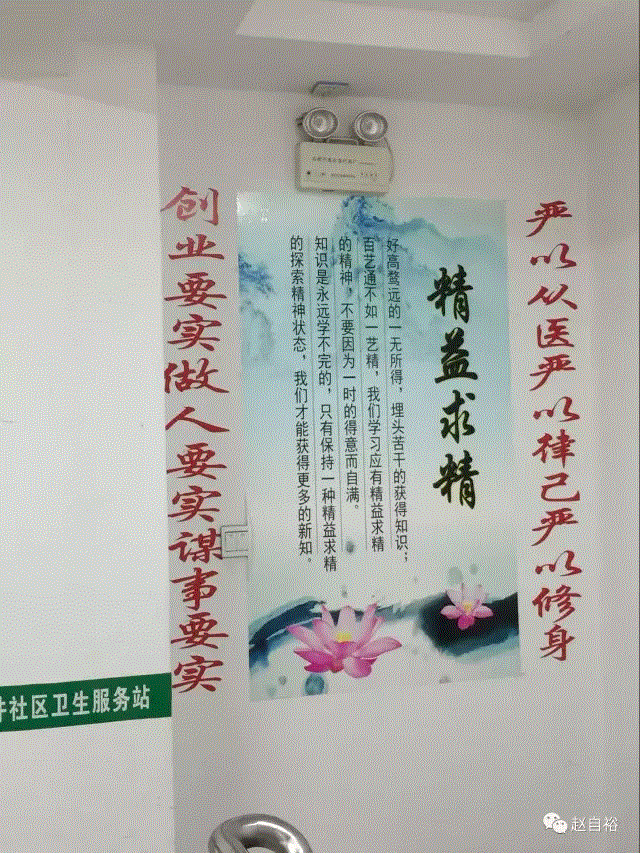 严以从医严以律己严以修身
精益求精
好高骛远的一无所得，埋头苦干的获得知识；
百艺通不如一艺精，我们学习应有精益求精
的精神，不要因为一时的得意而自满。
知识是永远学不完的，只有保持一种精益求精
的探索精神状态，我们才能获得更多的新知。
创业要实做人要实谋事要实
社区卫生服务站
赵自裕